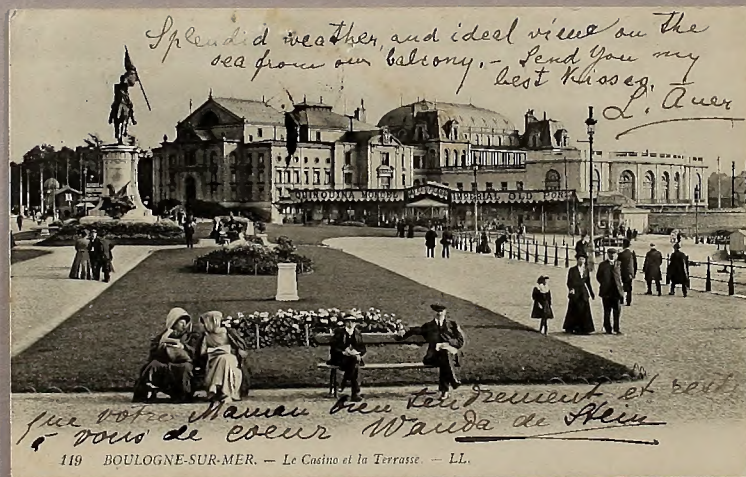 Splendid weather, and ideal view on the
sea from our balcony, - Send You my
best Kisses,
L. Auer
IMPERIAL OLD TOM
que votre Maman bien tendrement et reste
à vous de coeur Wanda de Stein
119 BOULOGNE-SUR-MER. — Le Casino et la Terrasse. — LL.